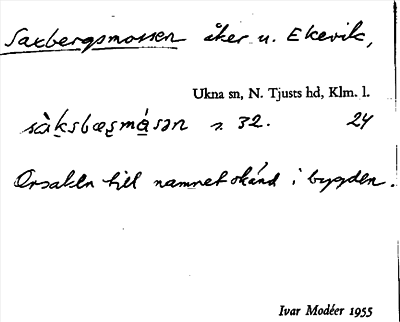 Saxbergsmossen åker u. Ekevik,
Ukna sn, N. Tjusts hd, Klm. l.
sàksbæsmásən s. 32. 24
Orsaken till namnet okänd i bygden.
Ivar Modéer 1955